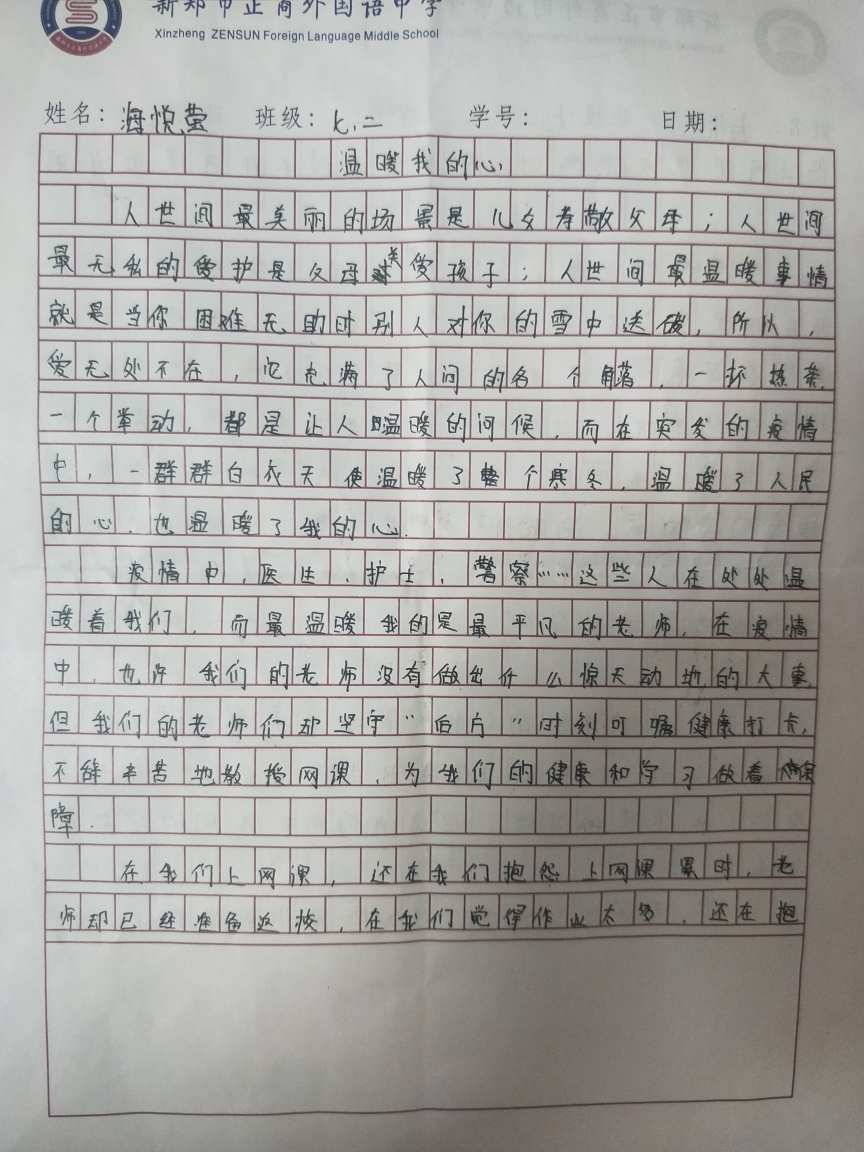 新郑市正商外国语中学
Xinzheng ZENSUN Foreign Language Middle School
姓名：海悦莹 班级：七.二 学号： 日期：
温暖我的心
人世间最美丽的场景是儿女孝敬父母；人世间
最无私的爱护是父母关爱孩子；人世间最温暖事情
就是当你困难无助时别人对你的雪中送碳，所以，
爱无处不在，它充满了人间的各个角落，一杯热茶，
一个举动，都是让人温暖的问候，而在突发的疫情
中，一群群白衣天使温暖了整个寒冬，温暖了人民
的心，也温暖了我的心.
疫情中，医生、护士、警察……这些人在处处温
暖着我们，而最温暖我的是最平凡的老师，在疫情
中，也许我们的老师没有做出什么惊天动地的大事，
但我们的老师们却坚守“后方”时刻叮嘱健康打卡，
不辞辛苦地教授网课，为我们的健康和学习做着保
障.
在我们上网课，还在我们抱怨上网课累时，老
师却已经准备返校，在我们觉得作业太多，还在抱